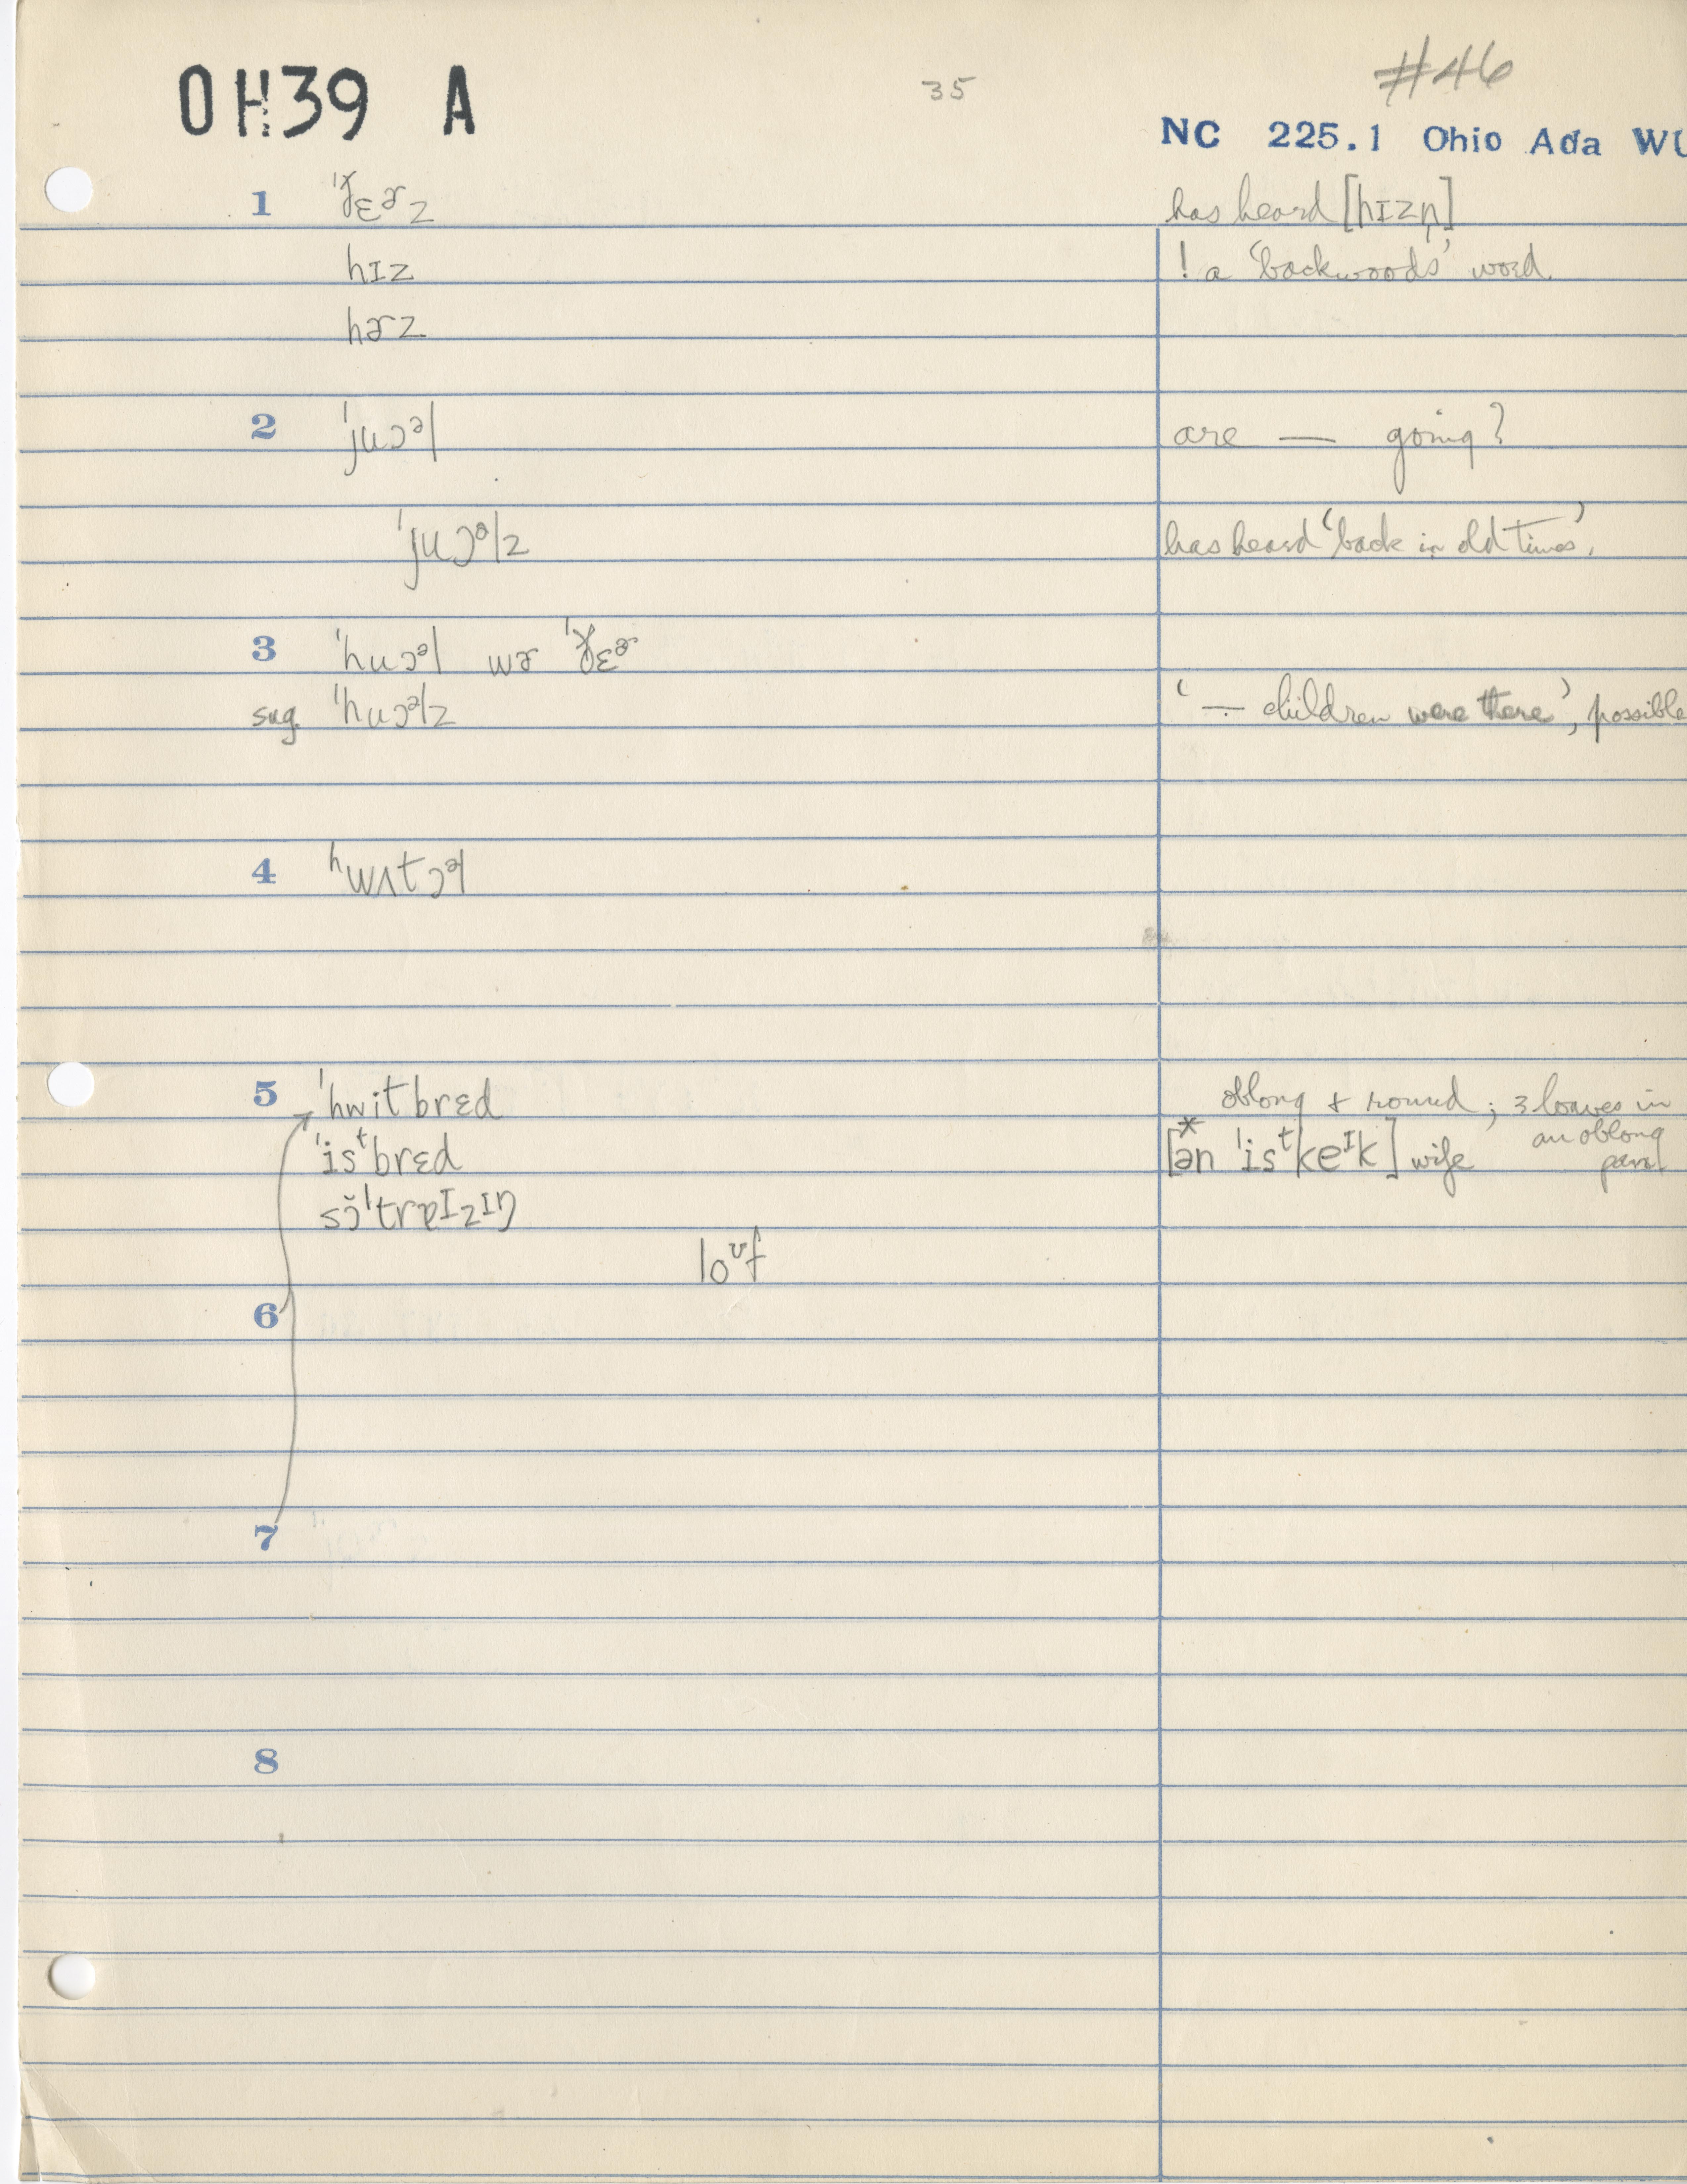 OH39 A
35
#46
NC 225.1 Ohio Ada WU
1 ˈðɛɚz has heard [hɪzn̩]
hɪz ! a 'backwoods' word.
hɚz
2 ˈjuɔᵊl are — going?
ˈjuɔᵊlz has heard 'back in old times'.
3 ˈhuɔᵊl wɚ ˈðɛɚ
sug. ˈhuɔᵊlz '— children were there', possible
4 ʰwʌtɔᵊl
5 ˈhwitbrɛd oblong & round; 3 loaves in an oblong pan
ˈisᵗbrɛd [*ən ˈisᵗkeᴵk] wife
sɔ̆ˈtrɐɪzɪŋ
loᶷf
6
7
8